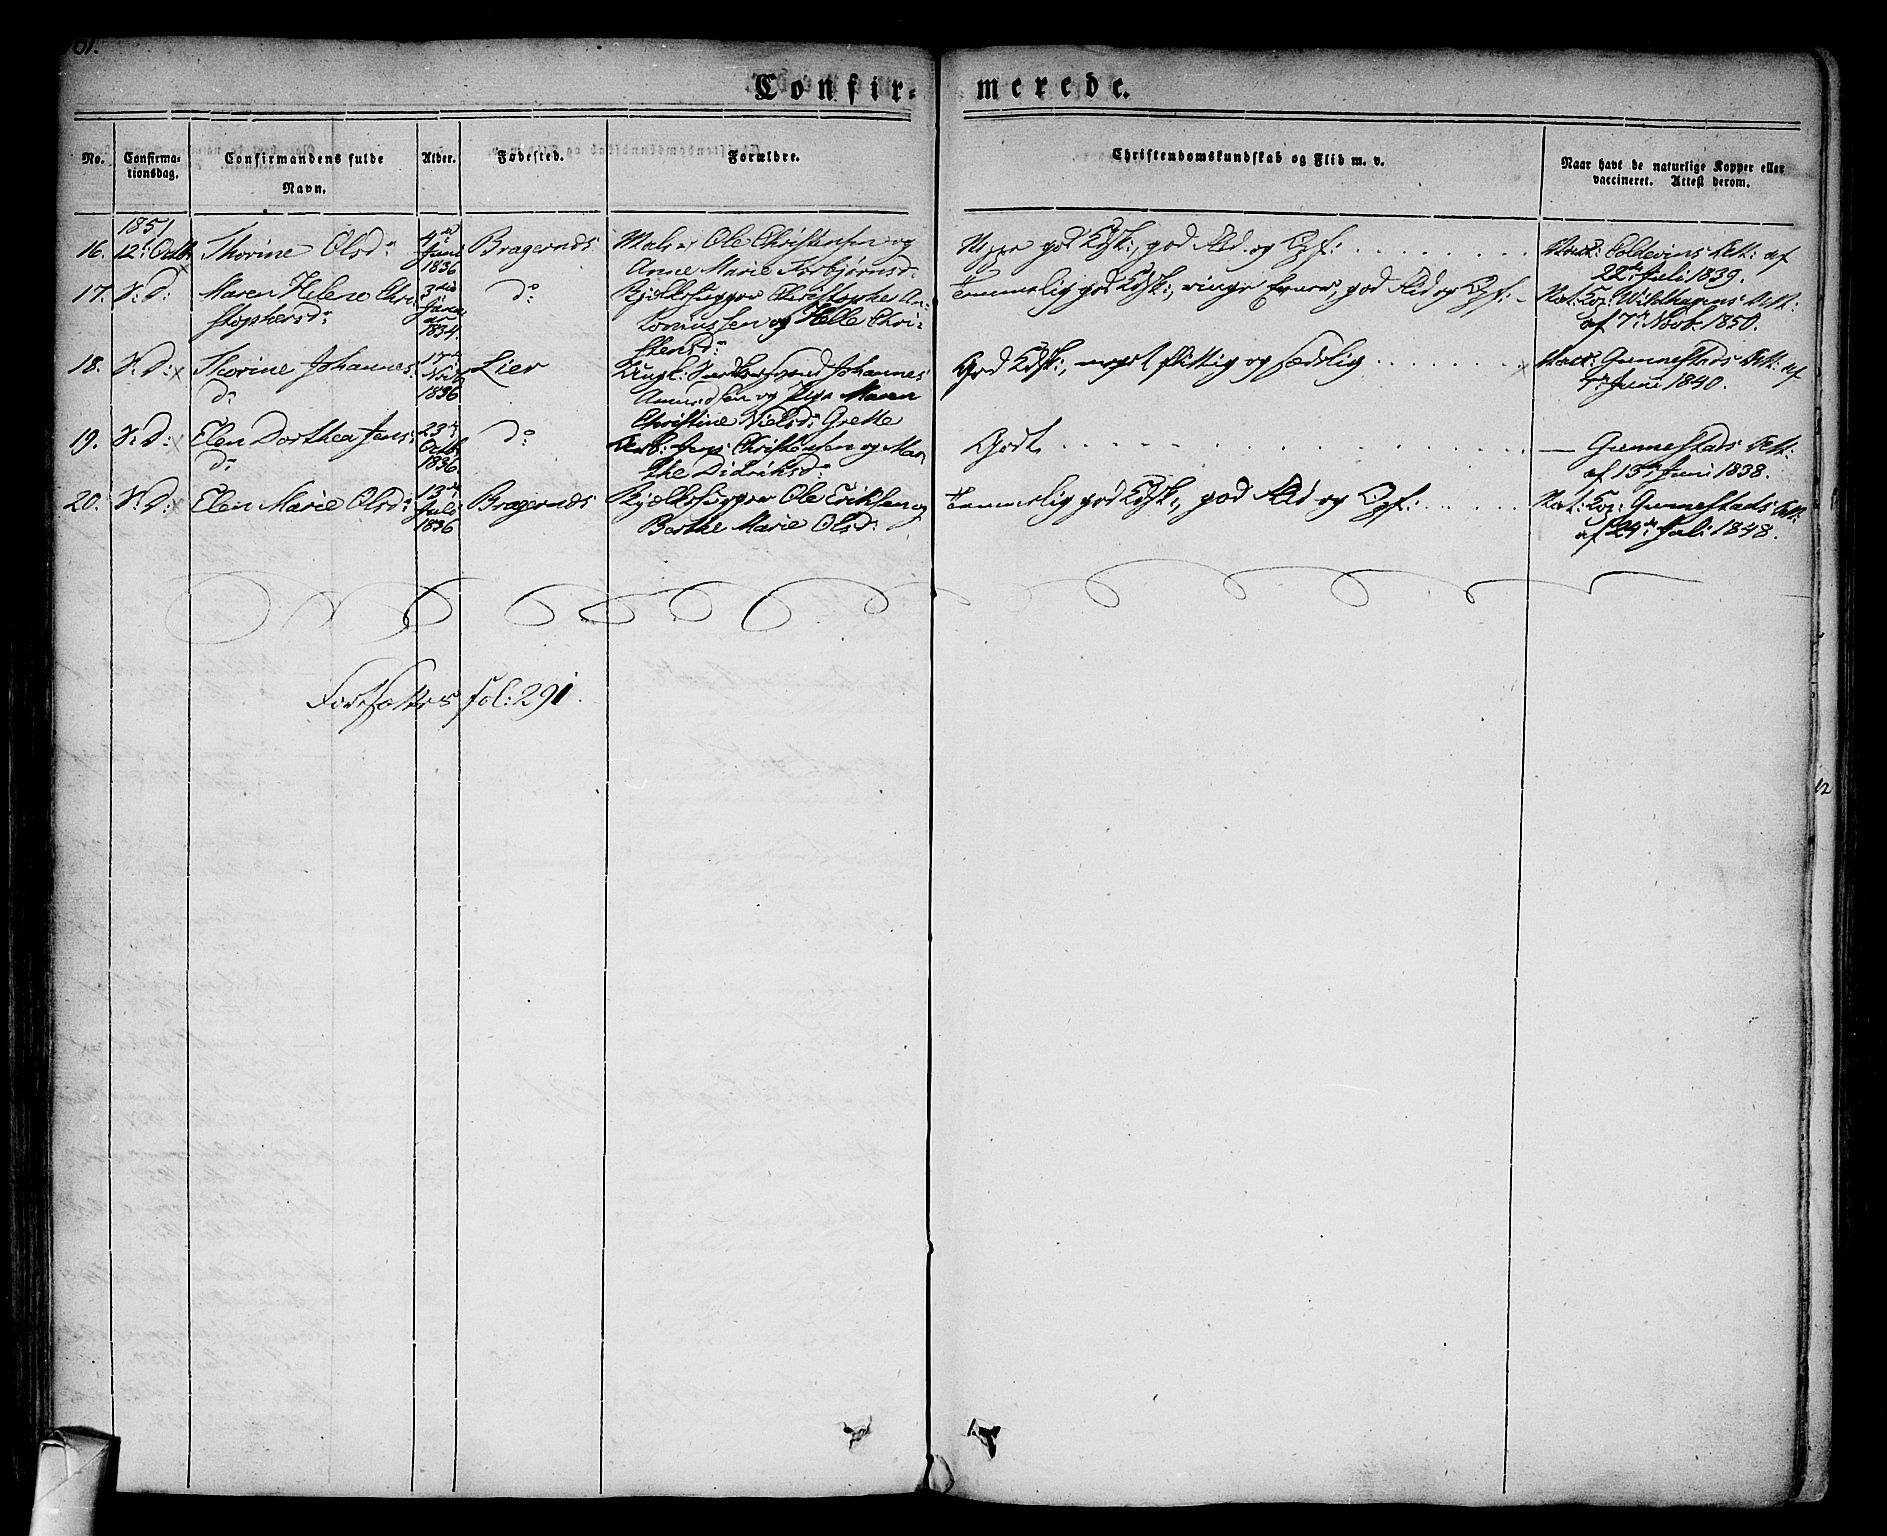 61.
Confir- merede.
No.
Confirma-
tionsdag.
Confirmandens fulde
Navn.
Alder.
Fødested.
Forældre.
Christendomskundskab og Flid m. v.
Naar havt de naturlige Kopper eller
vaccineret. Attest derom.
1851
16. 12: Octb: Thorine Olsd: 4de Juni 1836 Bragernæs Maler Ole Christensen og
Anne Marie Torbjørnsd:
god Kdsk:, god Flid og Opf:
Coldevins Att: af
22de Juli 1839.
17. S: D: Maren Helene Chri-
stophersd: 3die Janu-
ar 1834. do
Christopher An-
og Helle Chri-
stensd:
Temmelig god Kdsk:, ringe Evner, god Flid og Opf:
Vat: Cop: Wildhagens Att:
af 7de Novb. 1850.
18. S: D: Thorine Johannes-
d: 17de Novb 1836 Lier
Johannes
Amundsen og Pige Maren
Christine Nielsd: Grette
God Kdsk:, meget flittig og sædelig
Gunnestads Att: af
Juni 1840.
19. S: D: Elen Dorthea Jens-
d: 23de Octb 1836. do
Arb: Jens Christensen og Mar-
the Didriksd:
Godt
— Gunnestads Att:
af 13de Juni 1838.
20. S: D: Elen Marie Olsd: 13de Juli 1836 Bragernæs
Ole Eriksen og
Berthe Marie Olsd:
Temmelig god Kdsk:, god Flid og Opf:
Vat: Cop: Gunnestads Att:
af 24de Juli 1848.
Fortsættes fol: 291.
12